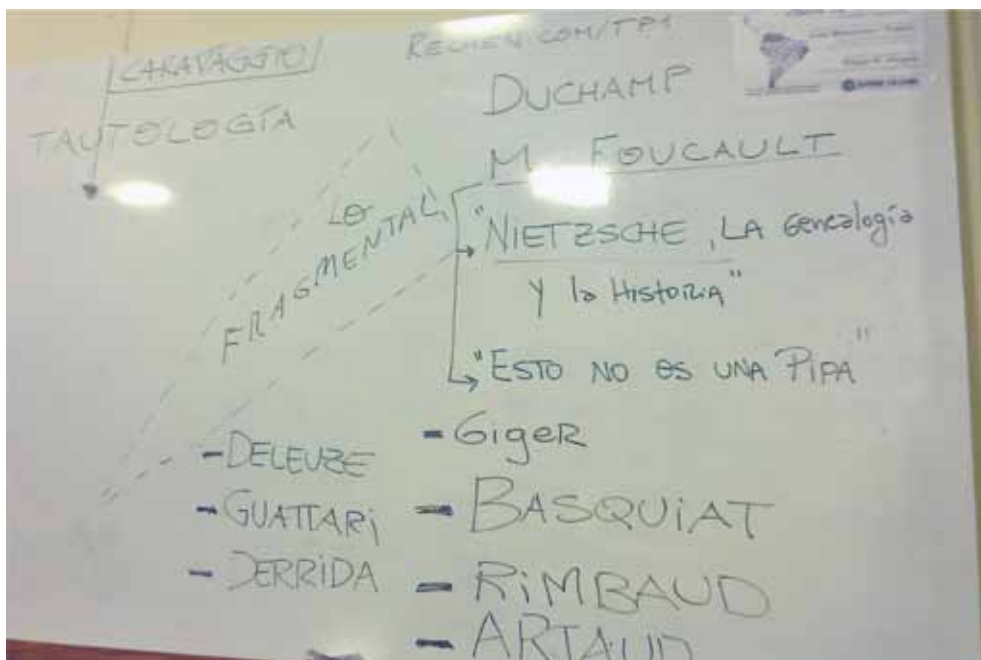 CARAVAGGIO
TAUTOLOGÍA
DUCHAMP
M. FOUCAULT
LO FRAGMENTAL
"NIETZSCHE, LA Genealogía
y la HistoRIA"
"ESTO NO es UNA PIPA"
- DELEUZE
- GUATTARi
- DERRiDA
- GigeR
- BASQUiAT
- RiMBAUD
- ARTAUD